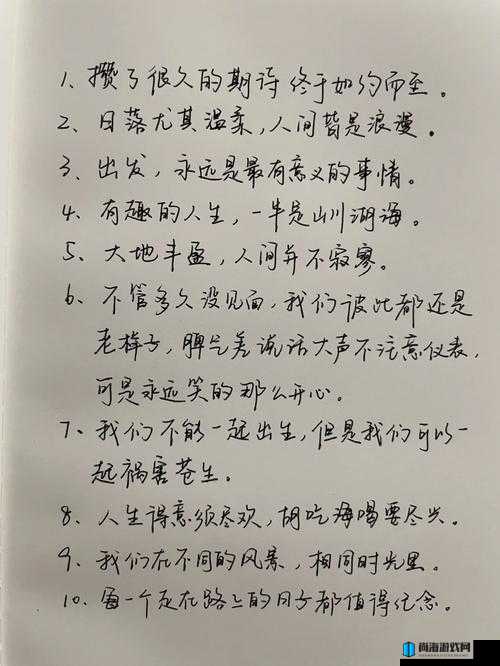 1、攒了很久的期待终于如约而至。
2、日落尤其温柔，人间皆是浪漫。
3、出发，永远是最有意义的事情。
4、有趣的人生，一半是山川湖海。
5、大地丰盈，人间并不寂寥。
6、不管多久没见面，我们彼此都还是
老样子，脾气差说话大声不注意仪表，
可是永远笑的那么开心。
7、我们不能一起出生，但是我们可以一
起祸害苍生。
8、人生得意须尽欢，胡吃海喝要尽兴。
9、我们在不同的风景，相同时光里。
10、每一个走在路上的日子都值得纪念。
尚海游戏网